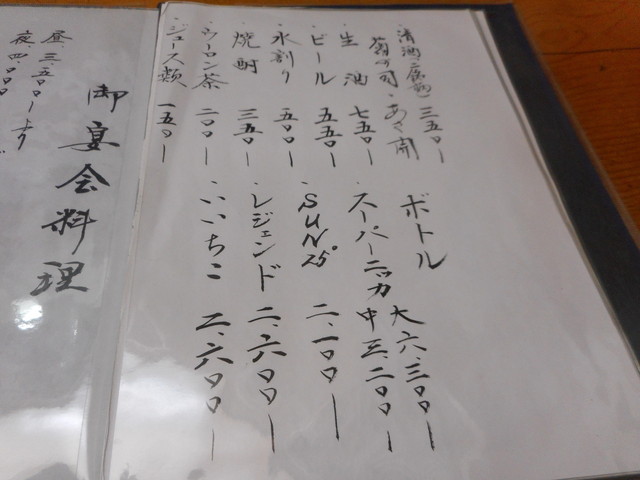 ・清酒(二級酒) 三五〇ー
菊の司・あさ開
・生酒 七五〇ー
・ビール 五五〇ー
・水割り 五〇〇ー
・焼酎 三五〇ー
・ウーロン茶 二〇〇ー
・ジュース類 一五〇ー
ボトル
・スーパーニッカ 大 六、三〇〇ー
中 三、二〇〇ー
・SUN 25° 二、一〇〇ー
・レジェンド 二、六〇〇ー
・いいちこ 二、六〇〇ー
御宴会料理
昼 三、五〇〇ーより
夜 四、〇〇〇